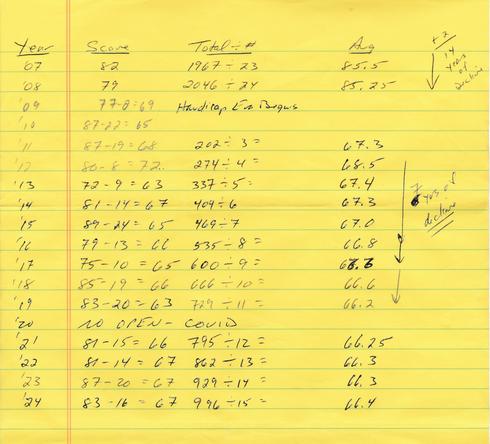 Year Score Total ÷ # Avg
'07 82 1967 ÷ 23 85.5
'08 79 2046 ÷ 24 85.25
'09 77-8=69 Handicap Era Begins
'10 87-22=65
'11 87-19=68 202 ÷ 3= 67.3
'12 80-8=72 274 ÷ 4= 68.5
'13 72-9=63 337 ÷ 5= 67.4
'14 81-14=67 404 ÷ 6 67.3
'15 89-24=65 469 ÷ 7 67.0
'16 79-13=66 535 ÷ 8= 66.8
'17 75-10=65 600 ÷ 9= 66.6
'18 85-19=66 666 ÷ 10= 66.6
'19 83-20=63 729 ÷ 11= 66.2
'20 NO OPEN - COVID
'21 81-15=66 795 ÷ 12= 66.25
'22 81-14=67 862 ÷ 13= 66.3
'23 87-20=67 929 ÷ 14= 66.3
'24 83-16=67 996 ÷ 15= 66.4
14
years
of
decline
7
yrs of
decline